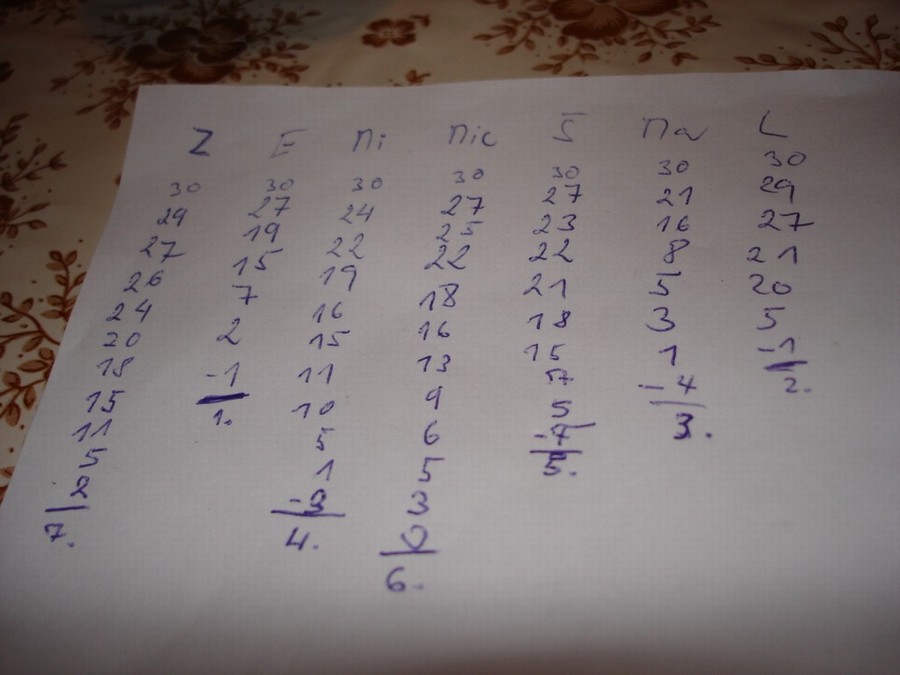 Z E Ni Nic Š Na L
30 30 30 30 30 30 30
29 27 24 27 27 21 29
27 19 22 25 23 16 27
26 15 19 22 22 8 21
24 7 16 18 21 5 20
20 2 15 16 18 3 5
18 -1 11 13 15 1 -1
15 1. 10 9 7 -4 2.
11 5 6 5 3.
5 1 5 -7
2 -3 3 5.
7. 4. 0
6.